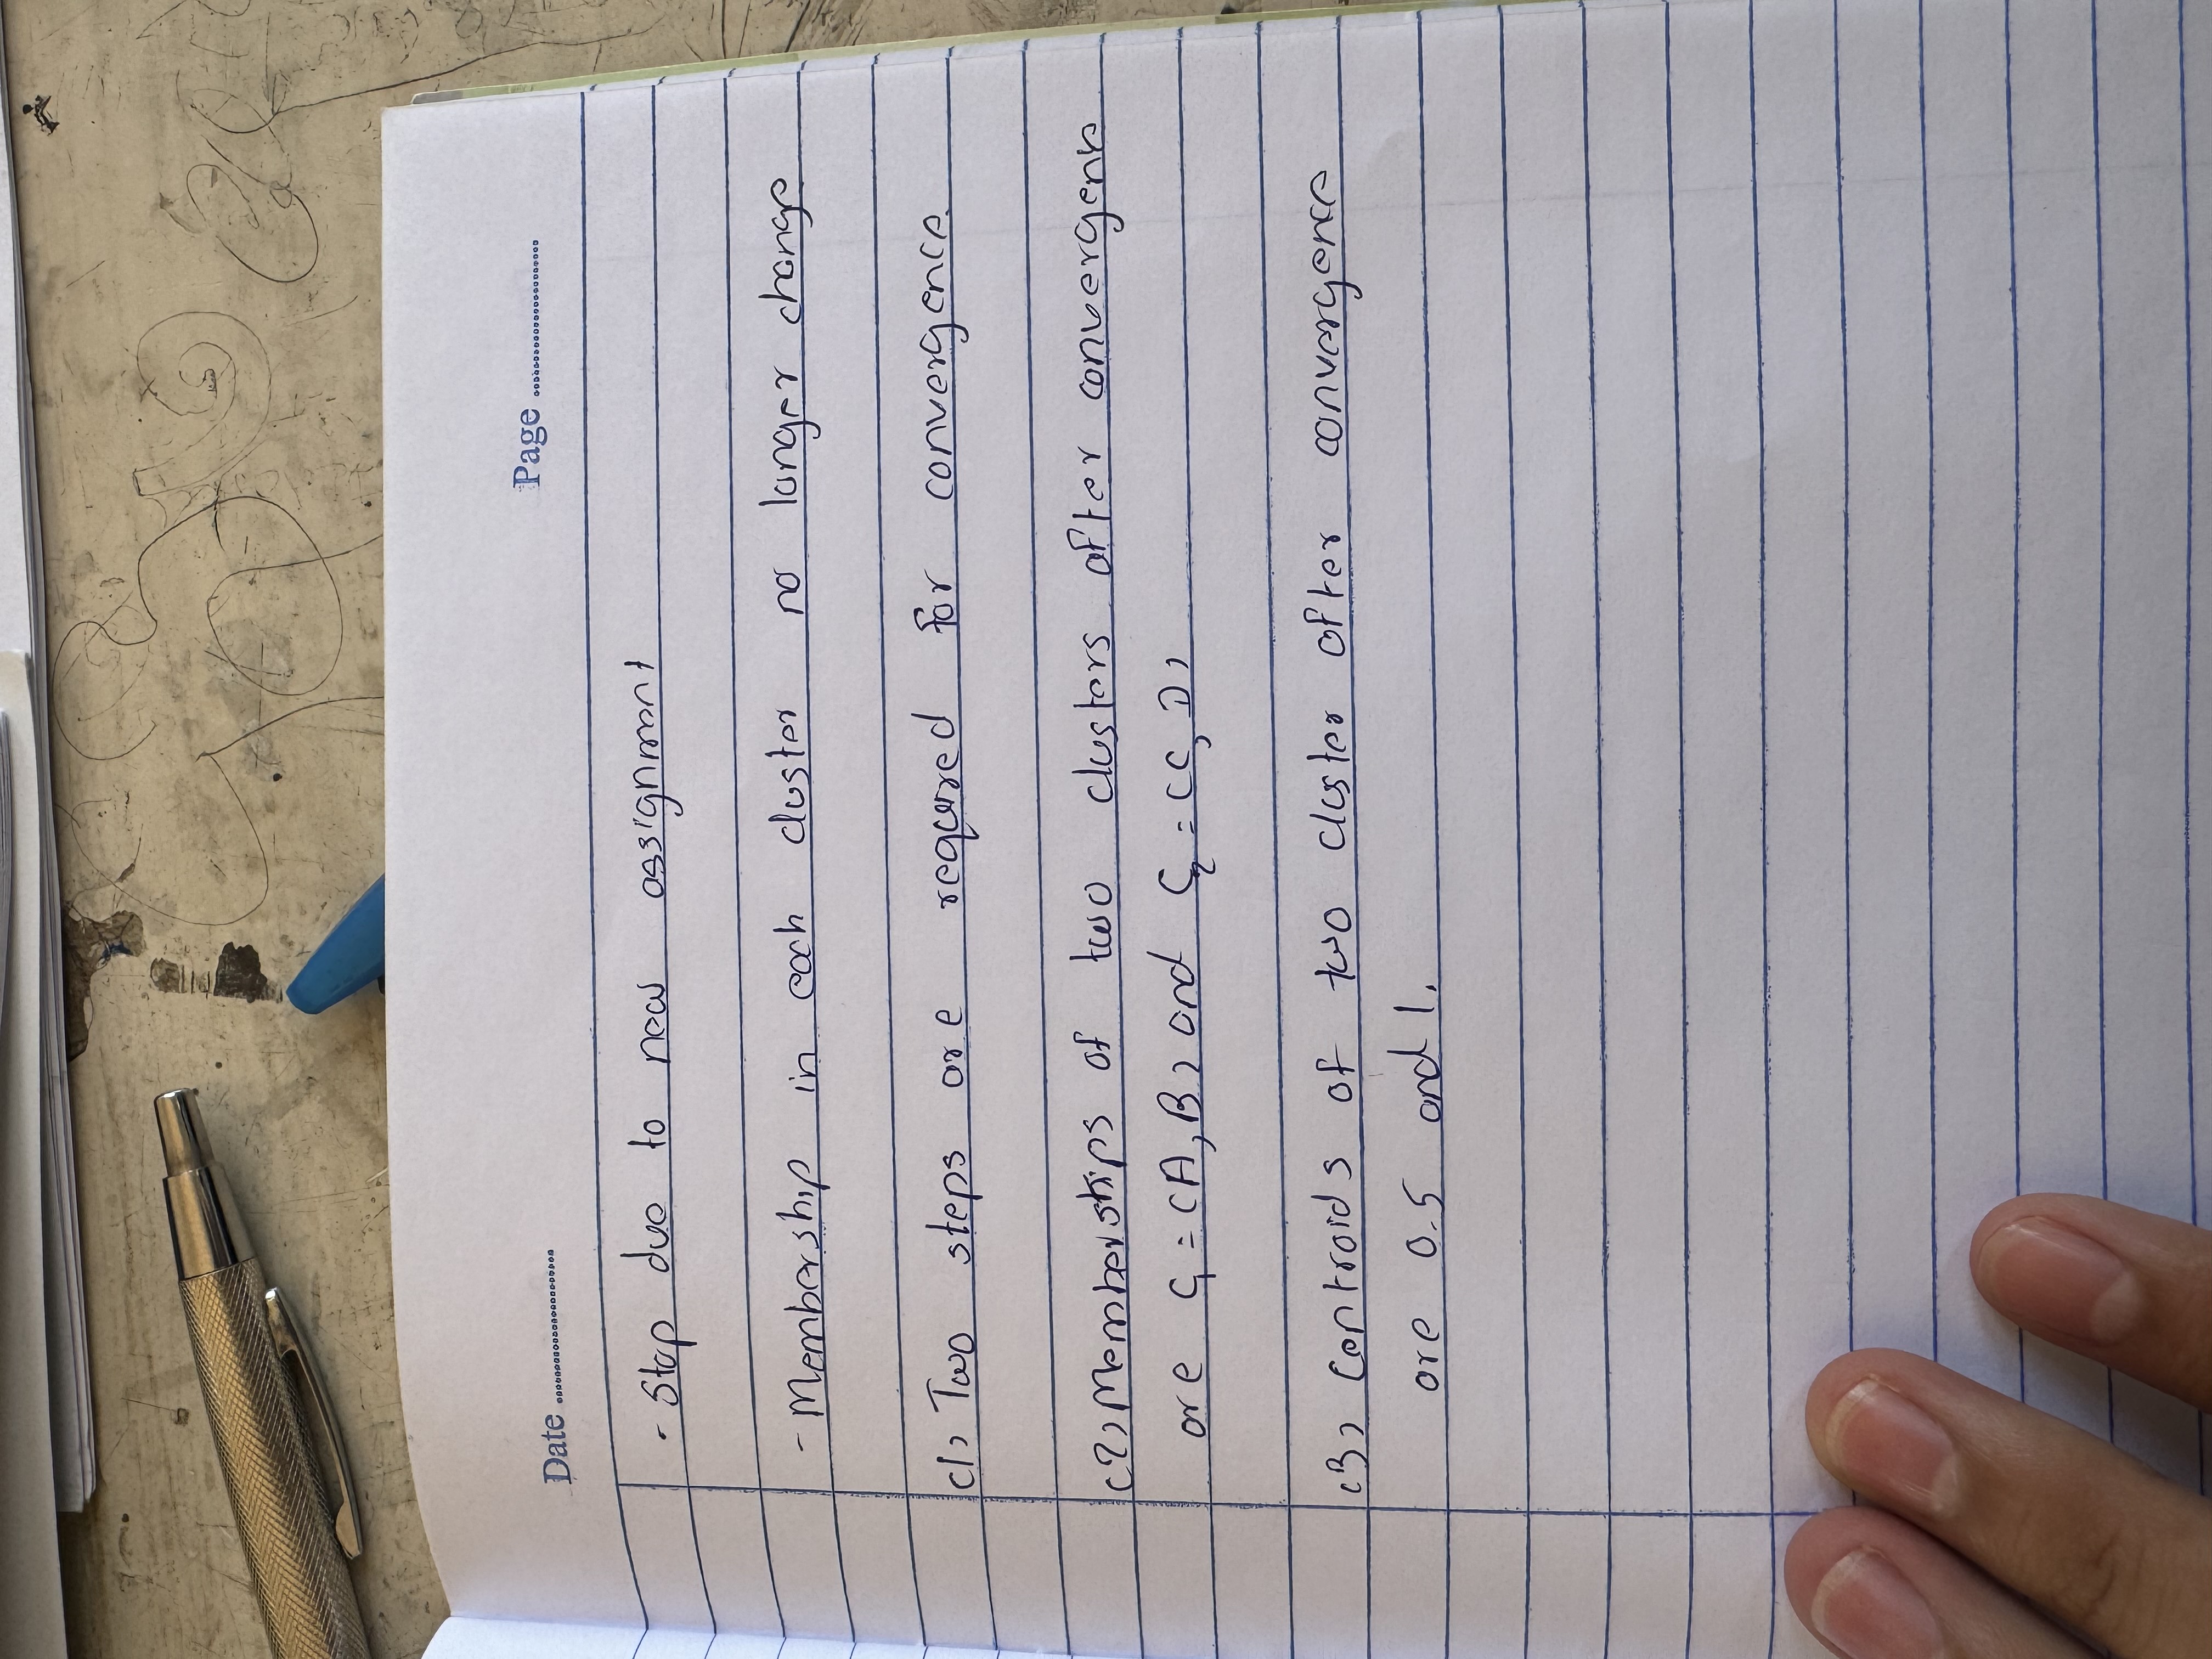 Date ........................
Page ........................
- Stop due to new assignment
- Membership in each cluster no longer change
(1) Two steps are required for convergence.
(2) Memberships of two clusters after convergence
are C₁ = (A, B) and C₂ = (C, D)
(3) Centroids of two cluster after convergence
are 0.5 and 1.